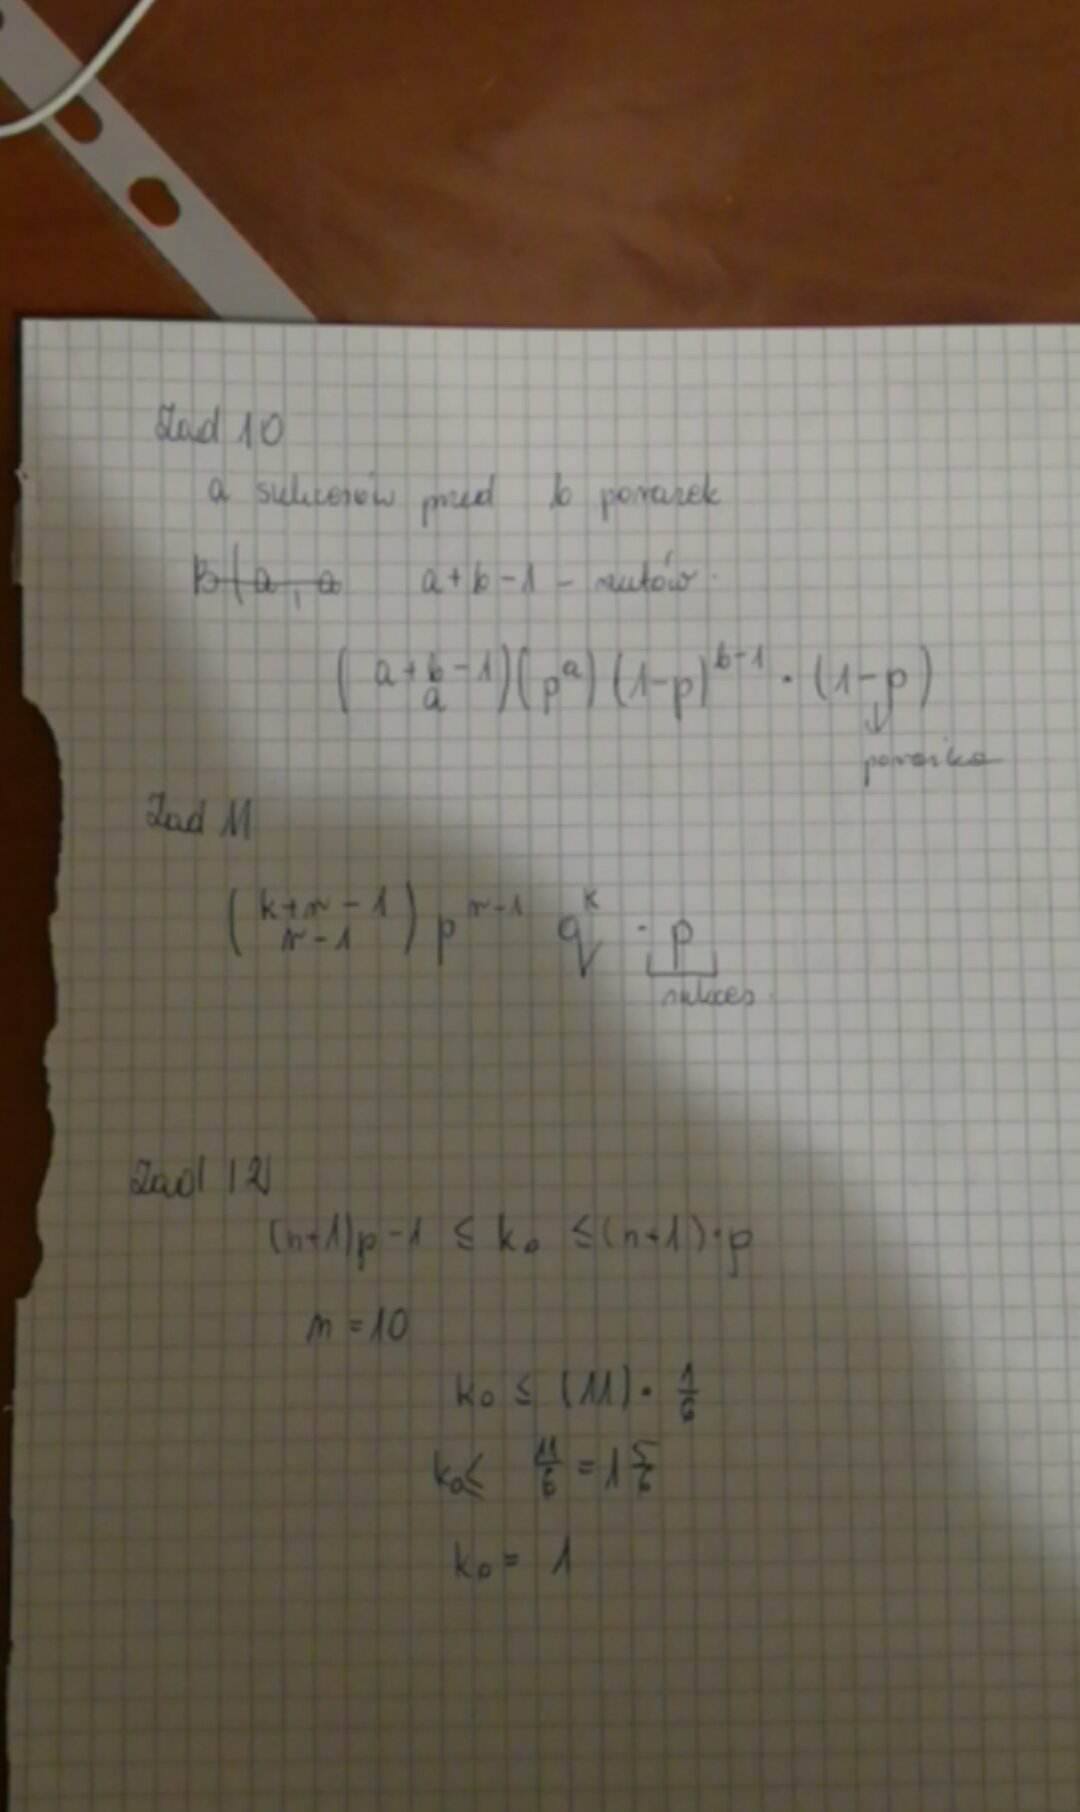 Zad 10
a sukcesów przed b porażek
B | a, a a + b - 1 - rzutów.
( a + b - 1 \\ a ) ( p^a ) (1-p)^{b-1} · (1-p)
↓
porażka
Zad 11
( k+r-1 \\ r-1 ) p^{r-1} q^k · p
sukces
Zad 12
(n+1)p - 1 ≤ k₀ ≤ (n+1)·p
n = 10
k₀ ≤ (11) · 1/6
k₀ ≤ 11/6 = 1 5/6
k₀ = 1